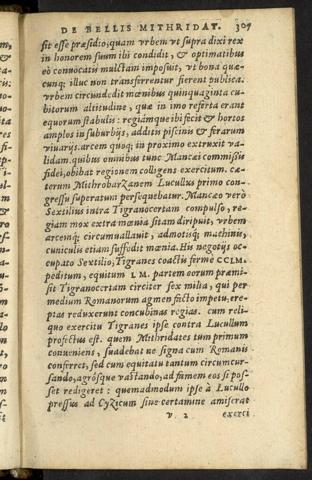 DE BELLIS MITHRIDAT. 307
sit esse præsidio; quam vrbem vt supra dixi rex
in honorem suum ibi condidit, & optimatibus
eò conuocatis mulctam imposuit, vt bona quæ-
cunq; illuc non transferrentur fierent publica.
vrbem circundedit mœnibus quinquaginta cu-
bitorum altitudine, quæ in imo referta erant
equorum stabulis: regiamque ibi fecit & hortos
amplos in suburbijs, additis piscinis & ferarum
viuarijs. arcem quoq; in proximo extruxit va-
lidam. quibus omnibus tunc Mancæi commissis
fidei, obibat regionem colligens exercitum. cæ-
terum MithrobarZanem Lucullus primo con-
gressu superatum persequebatur. Mancæo verò
Sextilius intra Tigranocertam compulso, re-
giam mox extra mœnia sitam diripuit, vrbem
arcemq; circumuallauit, admotisq; machinis,
cuniculis etiam suffodit mœnia. His negotijs oc-
cupato Sextilio, Tigranes coactis fermè CCLM.
peditum, equitum LM. partem eorum præmi-
sit Tigranocertam circiter sex milia, qui per
medium Romanorum agmen facto impetu, ere-
ptas reduxerunt concubinas regias. cum reli-
quo exercitu Tigranes ipse contra Lucullum
profectus est. quem Mithridates tum primum
conueniens, suadebat ne signa cum Romanis
conferret, sed cum equitatu tantum circumcur-
sando, agrósque vastando, ad famem eos si pos-
set redigeret: quemadmodum ipse à Lucullo
pressus ad CyZicum sine certamine amiserat
V. 2 exerci